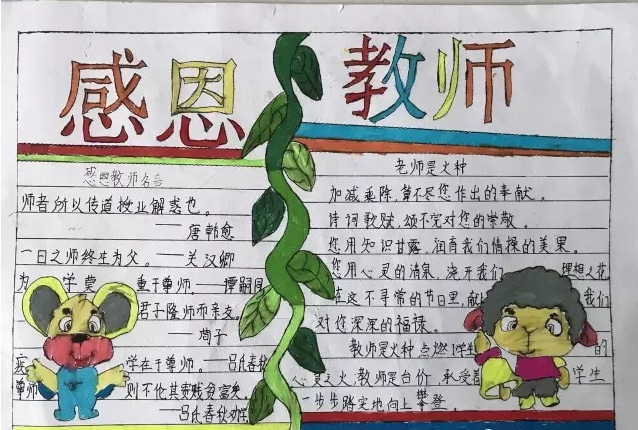 感恩教师
感恩教师名言
师者所以传道授业解惑也。
——唐韩愈
一日之师终生为父。——关汉卿
为 学莫 重于尊师.——谭嗣同
君子隆师而亲友.
——荀子
学在于尊师。——吕氏春秋
尊师 则不伦其贵贱贫富矣
——吕氏春秋
老师是火种
加减乘除,算不尽您作出的奉献。
诗词歌赋,颂不完对您的崇敬。
您用知识甘露,润育我们情操的美果。
您用心灵的清泉,浇开我们 理想之花
在这不寻常的节日里,献 我们
对您深深的福禄。
教师是火种点燃 学生 的
心灵之火;教师是台价,承受着 学生
一步步踏实地向上攀登。